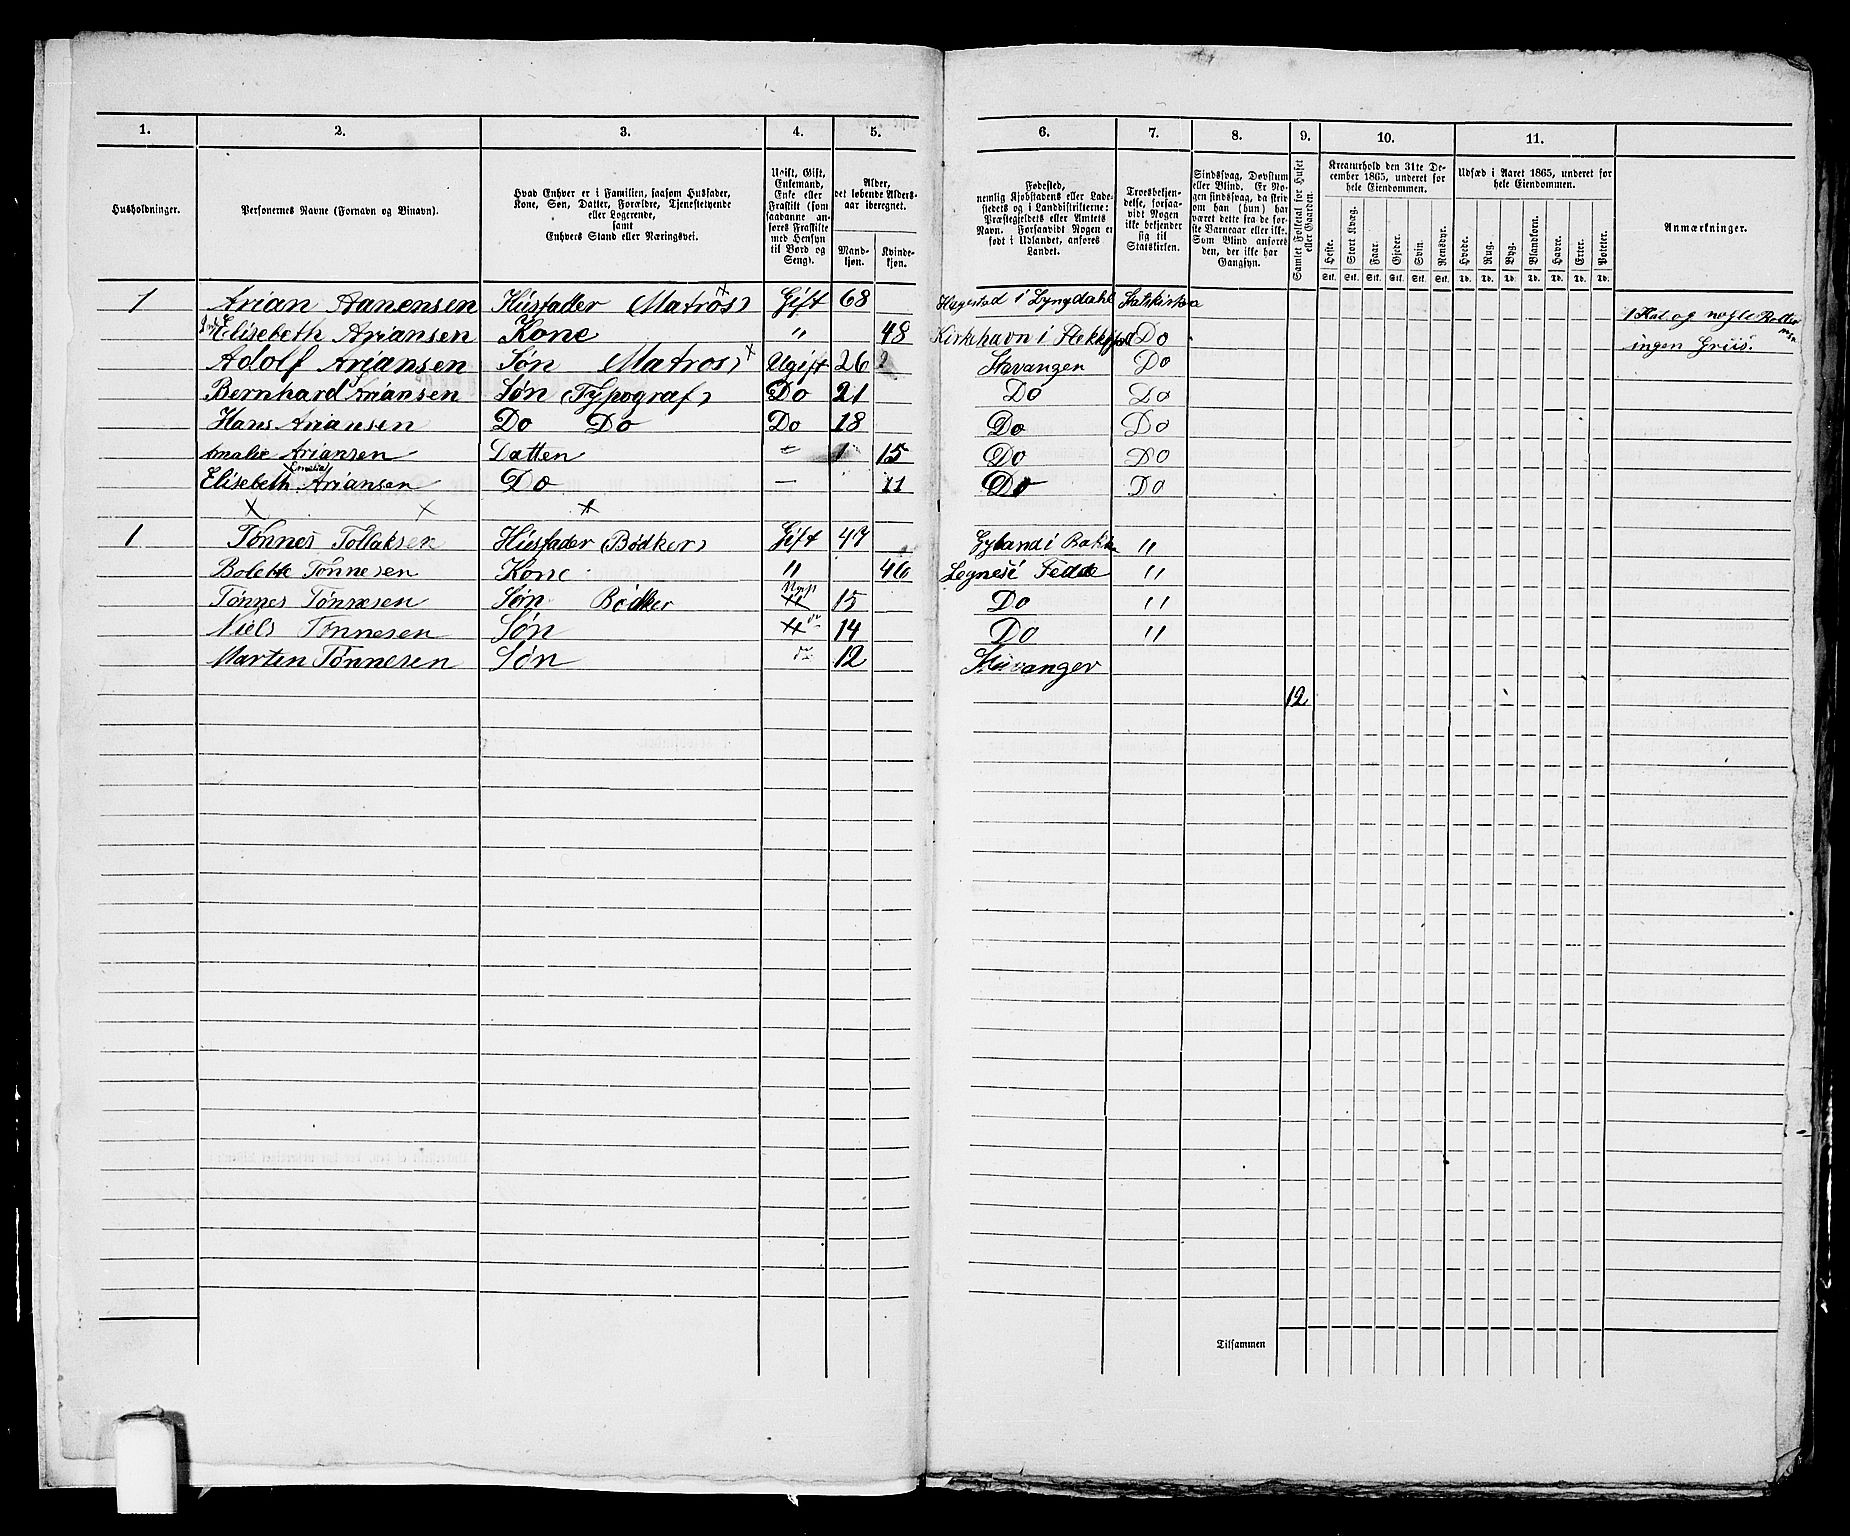 1. 2. 3. 4. 5. 6. 7. 8. 9. 10. 11.
Husholdninger.
Personernes Navne (Fornavn og Binavn).
Hvad Enhver er i Familien, saasom Husfader,
Kone, Søn, Datter, Forældre, Tjenestetyende
eller Logerende,
samt
Enhvers Stand eller Næringsvei.
Ugift, Gift,
Enkemand,
Enke eller
Fraskilt (som
saadanne an-
føres Fraskilte
med Hensyn
til Bord og
Seng).
Alder,
det løbende Alders-
aar iberegnet.
Mand-
kjøn.
Kvinde-
kjøn.
Fødested,
nemlig Kjøbstadens eller Lade-
stedets og i Landdistrikterne:
Præstegjeldets eller Amtets
Navn. Forsaavidt Nogen er
født i Udlandet, anføres
Landet.
Troesbekjen-
delse, forsaa-
vidt Nogen
ikke bekjender
sig til
Statskirken.
Sindssvag, Døvstum
eller Blind. Er No-
gen sindssvag, da skri-
ves om han (hun) har
været dette fra de før-
ste Barneaar eller ikke.
Som Blind anføres
den, der ikke har
Gangsyn.
Samlet Folketal for Huset
eller Gaarden.
Kreaturhold den 31te De-
cember 1865, underet for
hele Eiendommen.
Heste. Stort Kvæg. Faar. Gjeder. Svin. Rensdyr.
Stk. Stk. Stk. Stk. Stk. Stk.
Udsæd i Aaret 1865, underet for
hele Eiendommen.
Hvede. Rug. Byg. Blandkorn. Havre. Erter. Poteter.
Td. Td. Td. Td. Td. Td. Td.
Anmærkninger.
1 Arian Aanensen Husfader Matros) Gift 68 Hagestad i Lyngdahl Statskirken
Elisebeth Ariansen Kone " 48 Kirkehavn i Flekkefjord Do
Adolf Ariansen Søn Matros) Ugift 26 Stavanger Do
Bernhard Ariansen Søn (Typograf) Do 21 Do Do
Hans Ariansen Do Do Do 18 Do Do
Amalie Ariansen Datter 15 Do Do
Elisebeth Emalia Ariansen Do — 11 Do Do
1 Kat og nogle Rotter
ingen Griis.
1 Tønnes Tollaksen Husfader (Bødker) Gift 47 Gyland i Bakke "
Bolette Tønnesen Kone " 46 Fedde "
Tønnes Tønnesen Søn Bødker Ugift 15 Do "
Niels Tønnesen Søn do 14 Do "
Marten Tønnesen Søn do 12 Stavanger
12
Tilsammen